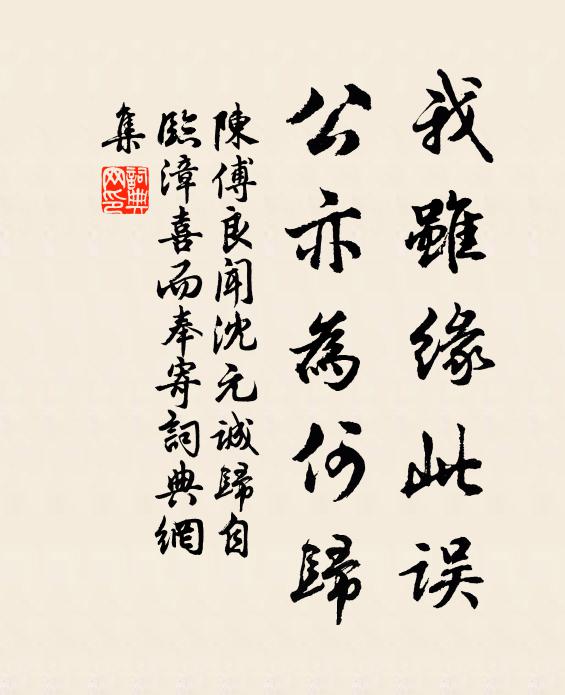 我雖緣此误
公亦為何歸
陳傅良闻沈元诚歸自
臨漳喜而奉寄詞典網
集
詞典
网印